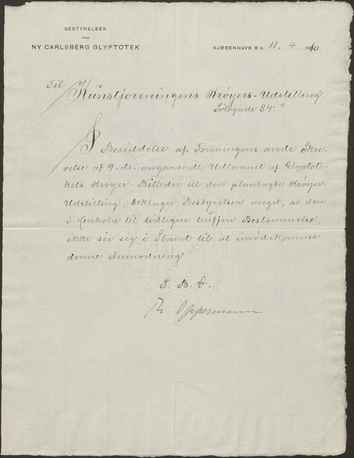 BESTYRELSEN
NY CARLSBERG GLYPTOTEK
KJØBENHAVN B. d. 11. 4. 1910
Til Kunstforeningens Krøyers-Udstilling
84.
I Besiddelse af Foreningens ærede Skri-
velse af 9. ds. angaaende Udlaanet af Glypto-
tekets Krøyer Billeder til den planlagte Krøyer
Udstilling beklager Bestyrelsen meget, at den
i Henhold til tidligere truffen Bestemmelse,
ikke ser sig i Stand til at imødekomme
denne Anmodning.
P. B. V.
Th. Oppermann